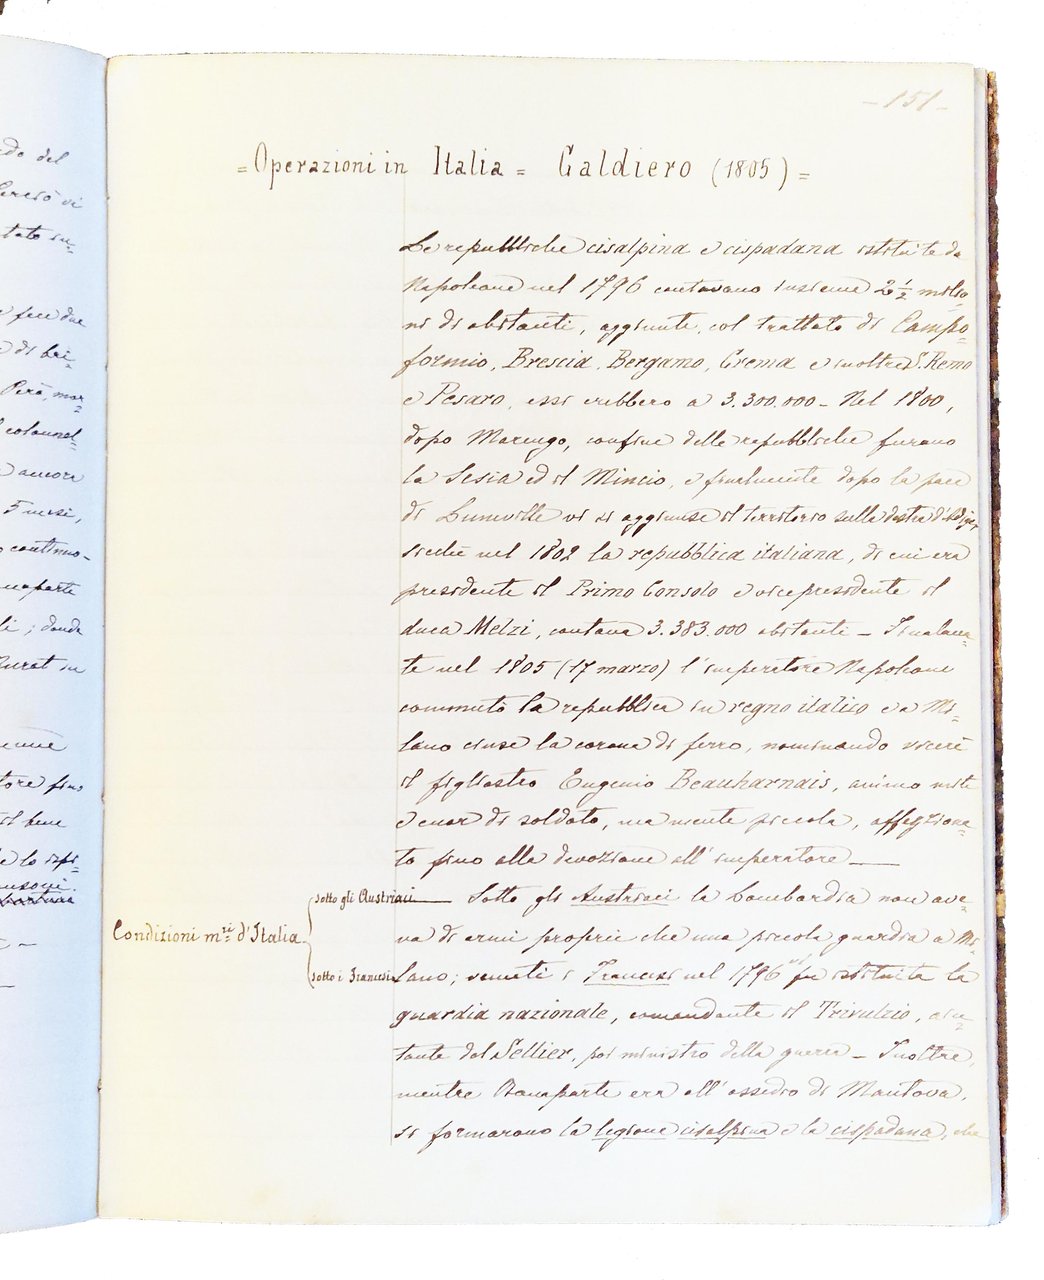 do del
tato su=
fece due
di bri=
Però, mar=
colonnel=
ancora
5 mesi,
continuo-
naparte
li; donde
Murat in
tore fino
il bene
e lo spi=
- 151 -
= Operazioni in Italia = Caldiero (1805) =
Le repubbliche cisalpina e cispadana istituite da
Napoleone nel 1796 contavano insieme 2 ½ milio=
ni di abitanti, aggiunte, col trattato di Campo=
formio, Brescia, Bergamo, Crema e inoltre S. Remo
e Pesaro, essi crebbero a 3.300.000 - Nel 1800,
dopo Marengo, confine delle repubbliche furono
la Sesia ed il Mincio, e finalmente dopo la pace
di Luneville vi si aggiunse il territorio sulla destra d'Adige,
sicchè nel 1802 la repubblica italiana, di cui era
presidente il Primo Consolo e vicepresidente il
duca Melzi, contava 3.383.000 abitanti - Finalmen=
te nel 1805 (17 marzo) l'imperatore Napoleone
commutò la repubblica in regno italico e a Mi=
lano cinse la corona di ferro, nominando vicerè
il figliastro Eugenio Beauharnais, animo mite
e cuor di soldato, ma mente piccola, affeziona=
to fino alla devozione all'imperatore —
sotto gli Austriaci — Sotto gli Austriaci la Lombardia non ave=
Condizioni m.ri d'Italia
va di armi proprie che una piccola guardia a Mi=
sotto i Francesi
lano; venuti i Francesi nel 1796 vi fu istituita la
guardia nazionale, comandante il Trivulzio, aiu=
tante dal Sellier, poi ministro della guerra - Inoltre,
mentre Bonaparte era all'assedio di Mantova,
si formarono la legione cisalpina e la cispadana, che